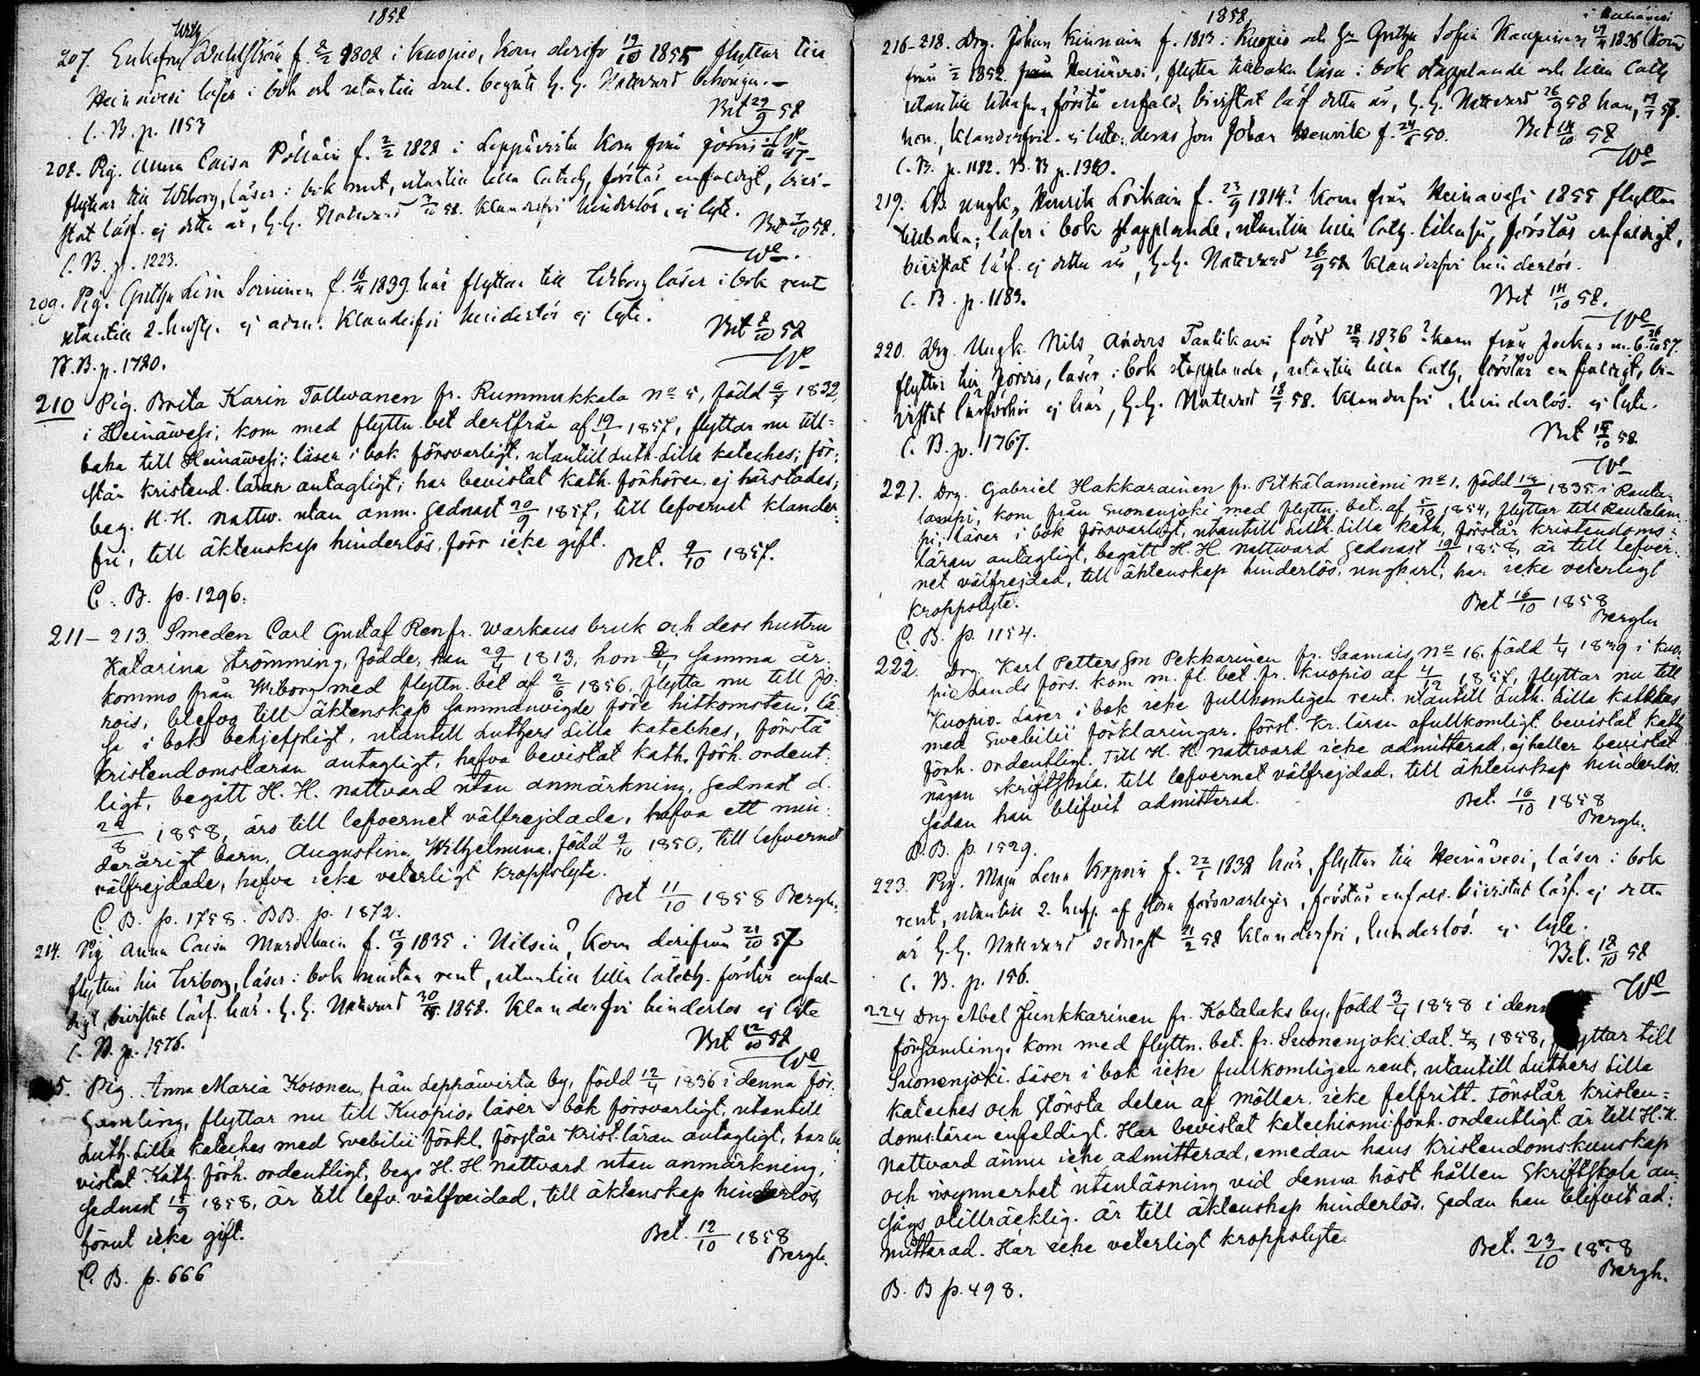 1858
207. Enkefru Dahlström f. 2/2 1802 i Kuopio, kom derifr 19/10 1855 flyttar till
Heinävesi läser i bok och utantill begått H. H. Nattvard
Bet 29/9 58
C. B. p. 1153
208. Pig. Anna Caisa f. 2/2 1828 i Leppävirta kom från Jorois
flyttar till Wiborg, läser i bok rent, utantill lilla Catech, förstår enfaldigt, bivi-
stat läsf. ej detta år, H. H. Nattvard 58. Klanderfri hinderlös, ej lyte.
Bet 58.
We
C. B. p. 1223.
209. Pig. Gretha Lisa Sorminen f. 1839 här flyttar till Wiborg läser i bok rent
utantill 2. hufst. ej adm. Klanderfri hinderlös ej lyte.
Bet 58
We
B. B. p. 1780.
210 Pig. Brita Karin Tallwanen fr. Rummukkala No 5, född 1832,
i Heinäwesi, kom med flyttn. bet derifrån af 19/1 1857, flyttar nu till-
baka till Heinäwesi; läser i bok försvarligt, utantill Luth. Lilla kateches; för-
står kristend. läran antagligt; har bevistat kath. förhören ej härstädes,
beg. H. H. nattw. utan anm. sednast 20/9 1857, till lefvernet klander-
fri, till äktenskap hinderlös, förr icke gift.
Bet. 9/10 1858.
C. B. p. 1296.
211 – 213. Smeden Carl Gustaf Ren fr. Warkaus bruk och dess hustru
Katarina Strömming, födde, han 29/4 1813, hon samma år.
kommo från Wiborg med flyttn. bet af 2/6 1856, flytta nu till Jo-
rois, blefvo till äktenskap sammanvigde före hitkomsten, lä-
sa i bok behjelpligt, utantill Luthers Lilla kateches, förstå
kristendomsläran antagligt, hafva bevistat kath. förh. ordent-
ligt, begått H. H. nattvard utan anmärkning, sednast d.
1858, äro till lefvernet välfrejdade, hafva ett min-
derårigt barn, Augustina Wilhelmina, född 9/10 1850, till lefvernet
välfrejdade, hafva icke veterligt kroppslyte.
Bet 11/10 1858 Bergh.
C. B. p. 1758. B B. p. 1872.
214. Pig Anna Caisa f. 17/9 1835 i Nilsiä? kom derifrån 21/10 57
flyttar till Wiborg, läser i bok rent, utantill lilla Catech. förstår enfal-
digt, bivistat läsf. här. H. H. Nattvard 1858. Klanderfri hinderlös ej lyte
Bet 12/10 58
We
C. B. p. 1576.
5. Pig. Anna Maria Kosonen, från Leppäwirta by, född 12/4 1836 i denna för-
samling, flyttar nu till Kuopio, läser i bok försvarligt, utantill
Luth. Lilla kateches med Svebilii förkl. förstår krist. läran antagligt, har be-
vistat Kath. förh. ordentligt, begg H. H. nattvard utan anmärkning,
sednast 19/9 1858, är till lefv. välfrejdad, till äktenskap hinderlös,
förut icke gift.
Bet. 12/10 1858
Bergh.
C. B. p. 666
1858
216-218. Drg. Johan Kinnain f. 1813 i Kuopio och Hu Gretha Sofia Kaupinen 1826 (kom
från 1852 Heinävesi, flytta tillbaka läsa i bok stapplande och lilla Cath
utantill förstå enfald, bivistat läsf detta år, H. H. Nattvard 26/9 58 han, 57.
hon, klanderfria ej lyte. deras son Johan Henrik f. 24/6 50.
Bet 14/10 58
We
C. B. p. 1182. B. B p. 1360.
219. Henrik Loikain f. 23/9 1814? kom från Heinävesi 1855 flyttar
tillbaka; läser i bok stapplande, utantill lilla Cath. förstår enfaldigt,
bivistat läsf. ej detta år, H. H. Nattvard 26/9 58 klanderfri hinderlös.
Bet 14/10 58.
We
C. B. p. 1183.
220. Drg. Ungk. Nils Anders Tantikain född 28/7 1836? kom från Jockas
flyttar till Jorois, läser i bok stapplande, utantill lilla Cath, förstår enfaldigt, bi-
vistat läsförhör ej här, H. H. Nattvard 58. klanderfri, hinderlös. ej lyte.
Bet 15/10 58
We
C. B. p. 1767.
221. Drg. Gabriel Hakkarainen fr. Pitkälanniemi No 1. född 1835 i Rauta-
lampi, kom från Suonenjoki med flyttn. bet. af 1854, flyttar till Rautalam-
pi, läser i bok försvarligt, utantill Luth. Lilla kath, förstår kristendoms-
läran antagligt, begått H. H nattvard sednast 1858, är till lefver-
net välfrejdad, till äktenskap hinderlös, ungkarl, har icke veterligt
kroppslyte.
Bet 16/10 1858
Bergh
C. B. p. 1154.
222. Drg. Karl Petterss son Pekkarinen fr. Saamais No 16. född 1/4 1839 i Kuo-
pio Lands förs. kom m. fl. bet. fr. Kuopio af 4/12 1857, flyttar nu till
Kuopio. Läser i bok icke fullkomligen rent. utantill Luth. Lilla kateches
med Svebilii förklaringar. först. kr. läran ofullkomligt. bevistat kath.
förh. ordentligt. Till H. H. nattward icke admitterad, ej heller bevistat
någon skriftskola. till lefvernet välfrejdad, till äktenskap hinderlös,
sedan han blifvit admitterad.
Bet. 16/10 1858
Bergh.
B. B. p. 1529.
223. Pig. Maja Lena f. 22/1 1838 här, flyttar till Heinävesi, läser i bok
rent, utantill 2. hufst. försvarligen, förstår enfald. bivistat läsf. ej detta
år H. H. Nattvard sednast 21/2 58 Klanderfri, hinderlös. ej lyte.
Bet. 18/10 58
We
C. B. p. 156.
224 Drg Abel Junkkarinen fr. Kotalaks by, född 3/4 1838 i denna
församling, kom med flyttn. bet. fr. Suonenjoki dat. 4/3 1858, flyttar till
Suonenjoki. Läser i bok icke fullkomligen rent, utantill Luthers Lilla
kateches och största delen af möller icke felfritt. Förstår kristen-
domsläran enfaldigt. Har bevistat katechismi förh. ordentligt är till H. H.
nattvard ännu icke admitterad, emedan hans kristendomskunskap
och isynnerhet utanläsning vid denna höst hållen skriftskola an-
sågs otillräcklig. är till äktenskap hinderlös, sedan han blifvit ad-
mitterad. Har icke veterligt kroppslyte.
Bet. 23/10 1858
Bergh.
B. B p. 498.